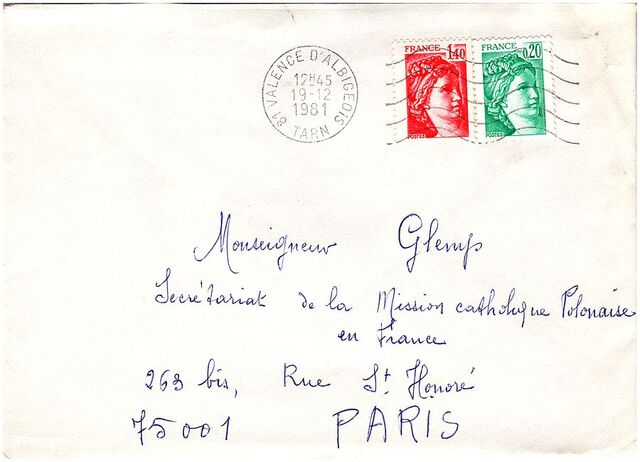 81 VALENCE D'ALBIGEOIS
12H45
19-12
1981
TARN
FRANCE 1,40
POSTES
FRANCE 0,20
POSTES
Monseigneur Glemp
Secrétariat de la Mission catholique Polonaise
en France
263 bis, Rue St. Honoré
75001 PARIS